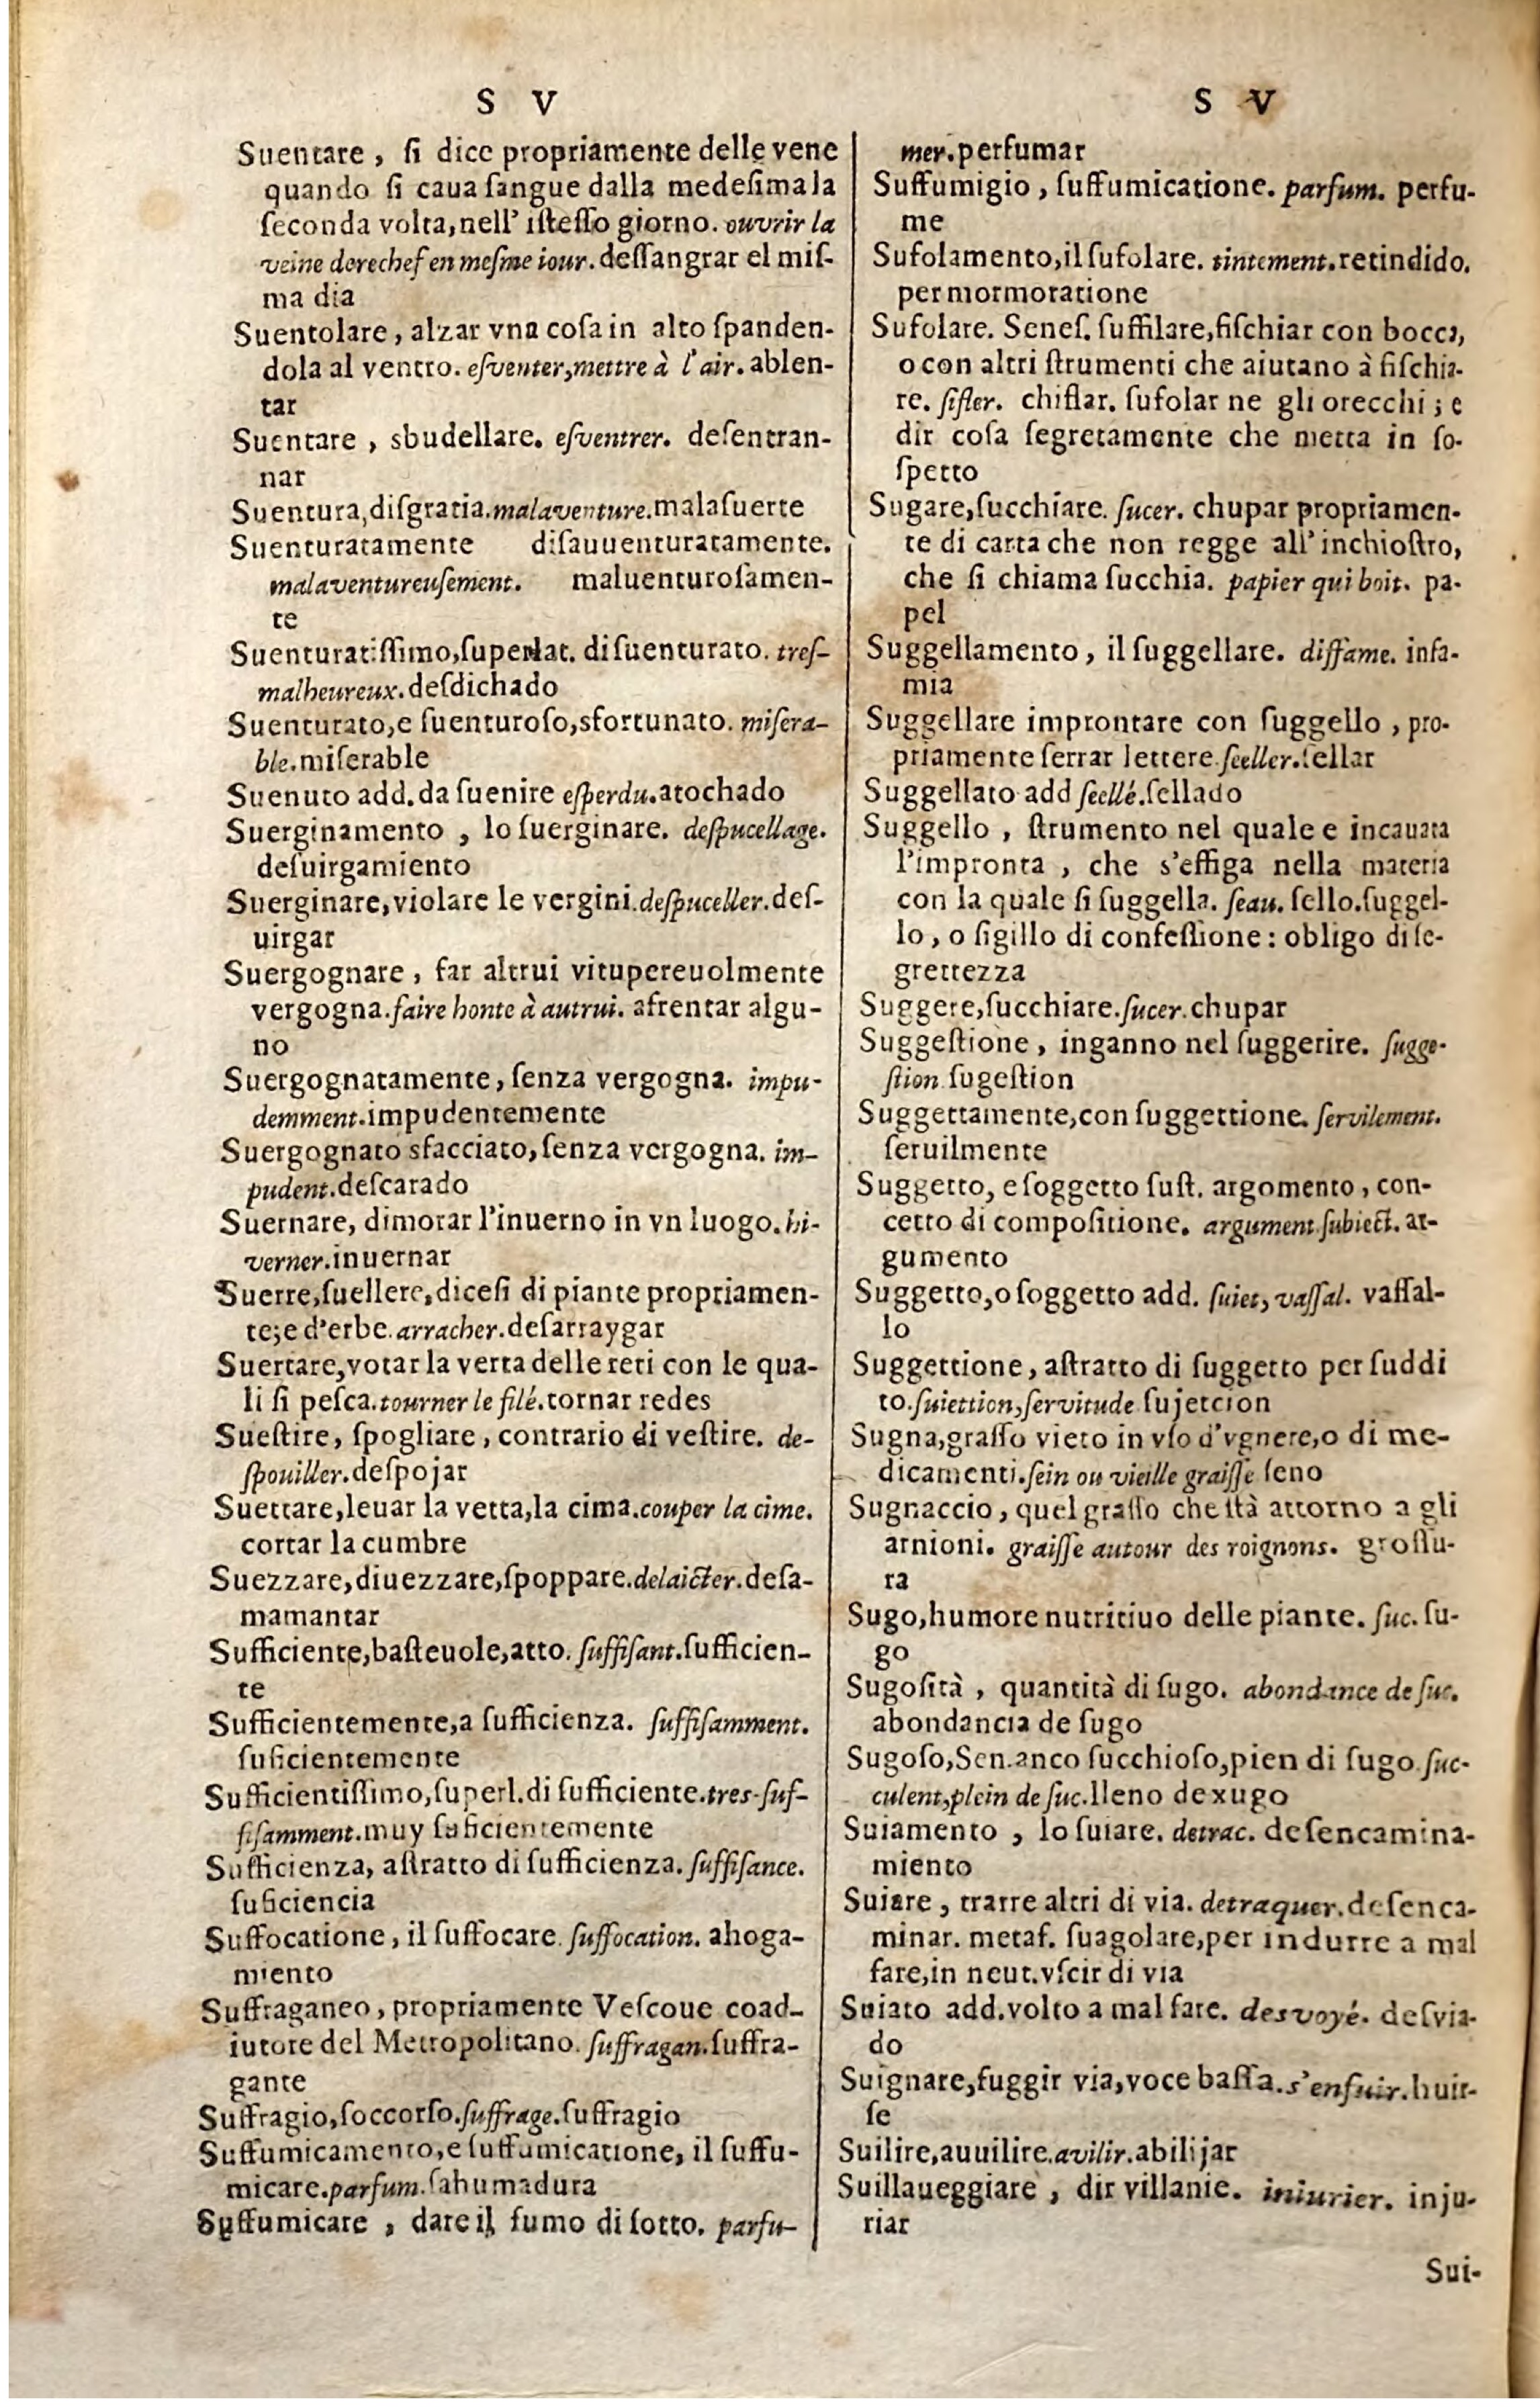 S V
Suentare, ſi dice propriamente delle vene
quando ſi caua ſangue dalla medeſima la
ſeconda volta, nell' iſteſſo giorno. ouvrir la
veine derechef en meſme iour. deſſangrar el miſ-
ma dia
Suentolare, alzar vna coſa in alto ſpanden-
dola al ventto. eſventer, mettre à l'air. ablen-
tar
Suentare, sbudellare. eſventrer. deſentran-
nar
Suentura, diſgratia. malaventure. mala ſuerte
Suenturatamente diſauuenturatamente.
malaventureuſement. maluenturoſamen-
te
Suenturatiſſimo, ſuperlat. di ſuenturato. treſ-
malheureux. deſdichado
Suenturato, e ſuenturoſo, sfortunato. miſera-
ble. miſerable
Suenuto add. da ſuenire eſperdu. atochado
Suerginamento, lo ſuerginare. deſpucellage.
deſuirgamiento
Suerginare, violare le vergini. deſpuceller. deſ-
uirgar
Suergognare, far altrui vitupereuolmente
vergogna. faire honte à autrui. afrentar algu-
no
Suergognatamente, ſenza vergogna. impu-
demment. impudentemente
Suergognato sfacciato, ſenza vergogna. im-
pudent. deſcarado
Suernare, dimorar l'inuerno in vn luogo. hi-
verner. inuernar
Suerre, ſuellere, diceſi di piante propriamen-
te; e d'erbe. arracher. deſarraygar
Suertare, votar la verta delle reti con le qua-
li ſi peſca. tourner le filé. tornar redes
Sueſtire, ſpogliare, contrario di veſtire. de-
ſpouiller. deſpojar
Suettare, leuar la vetta, la cima. couper la cime.
cortar la cumbre
Suezzare, diuezzare, ſpoppare. delaicter. deſa-
mamantar
Sufficiente, baſteuole, atto. ſuffiſant. ſufficien-
te
Sufficientemente, a ſufficienza. ſuffiſamment.
ſuficientemente
Sufficientiſſimo, ſuperl. di ſufficiente. tres-ſuf-
fiſamment. muy ſuficientemente
Sufficienza, aſtratto di ſufficienza. ſuffiſance.
ſuficiencia
Suffocatione, il ſuffocare. ſuffocation. ahoga-
miento
Suffraganeo, propriamente Veſcoue coad-
iutore del Metropolitano. ſuffragan. ſuffra-
gante
Suffragio, ſoccorſo. ſuffrage. ſuffragio
Suffumicamento, e ſuffumicatione, il ſuffu-
micare. parfum. ſahumadura
Suffumicare, dare il fumo di ſotto. parfu-
S V
mer. perfumar
Suffumigio, ſuffumicatione. parfum. perfu-
me
Sufolamento, il ſufolare. tintement. retindido.
per mormoratione
Sufolare. Seneſ. ſuffilare, fiſchiar con bocca,
o con altri ſtrumenti che aiutano à fiſchia-
re. ſifler. chiflar. ſufolar ne gli orecchi; e
dir coſa ſegretamente che metta in ſo-
ſpetto
Sugare, ſucchiare. ſucer. chupar propriamen-
te di carta che non regge all' inchioſtro,
che ſi chiama ſucchia. papier qui boit. pa-
pel
Suggellamento, il ſuggellare. diffame. infa-
mia
Suggellare improntare con ſuggello, pro-
priamente ſerrar lettere. ſeeller. ſellar
Suggellato add ſeellé. ſellado
Suggello, ſtrumento nel quale e incauata
l'impronta, che s'effiga nella materia
con la quale ſi ſuggella. ſeau. ſello. ſuggel-
lo, o ſigillo di confeſſione: obligo di ſe-
grettezza
Suggere, ſucchiare. ſucer. chupar
Suggeſtione, inganno nel ſuggerire. ſugge-
ſtion. ſugeſtion
Suggettamente, con ſuggettione. ſervilement.
ſeruilmente
Suggetto, e ſoggetto ſuſt. argomento, con-
cetto di compoſitione. argument. ſubiect. ar-
gumento
Suggetto, o ſoggetto add. ſuiet, vaſſal. vaſſal-
lo
Suggettione, aſtratto di ſuggetto per ſuddi
to. ſuiettion, ſervitude ſujetcion
Sugna, graſſo vieto in vſo d'vgnere, o di me-
dicamenti. ſein ou vieille graiſſe ſeno
Sugnaccio, quel graſſo che ſtà attorno a gli
arnioni. graiſſe autour des roignons. groſſu-
ra
Sugo, humore nutritiuo delle piante. ſuc. ſu-
go
Sugoſità, quantità di ſugo. abondance de ſuc.
abondancia de ſugo
Sugoſo, Sen. anco ſucchioſo, pien di ſugo. ſuc-
culent, plein de ſuc. lleno de xugo
Suiamento, lo ſuiare. detrac. deſencamina-
miento
Suiare, trarre altri di via. detraquer. deſenca-
minar. metaf. ſuagolare, per indurre a mal
fare, in neut. vſcir di via
Suiato add. volto a mal fare. desvoyé. deſvia-
do
Suignare, fuggir via, voce baſſa. s'enfuir. huir-
ſe
Suilire, auuilire. avilir. abilijar
Suillaueggiare, dir villanie. iniurier. inju-
riar
Sui-